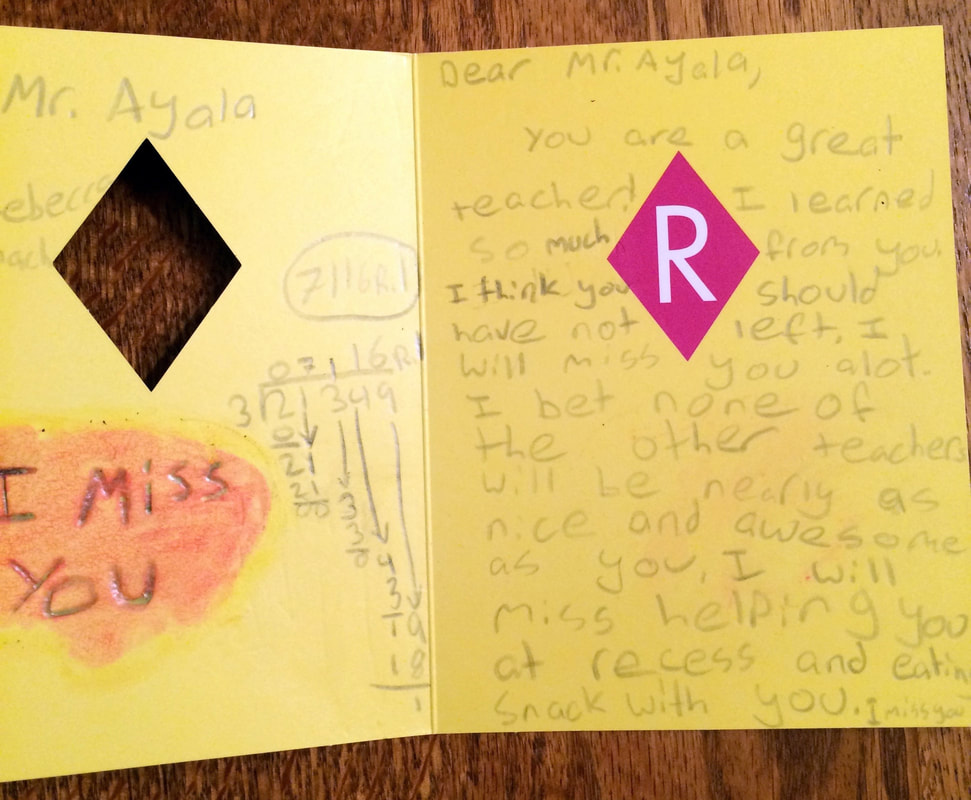 Mr. Ayala
7116R.1
07,116R.1
3 21349
0
21
21
03
3
04
3
19
18
1
I Miss
YOU
Dear Mr. Ayala,
you are a great
teacher! I learned
so much from you.
I think you should
have not left. I
will miss you alot.
I bet none of
the other teachers
will be nearly as
nice and awesome
as you. I will
miss helping you
at recess and eatin
snack with you. I miss you
R